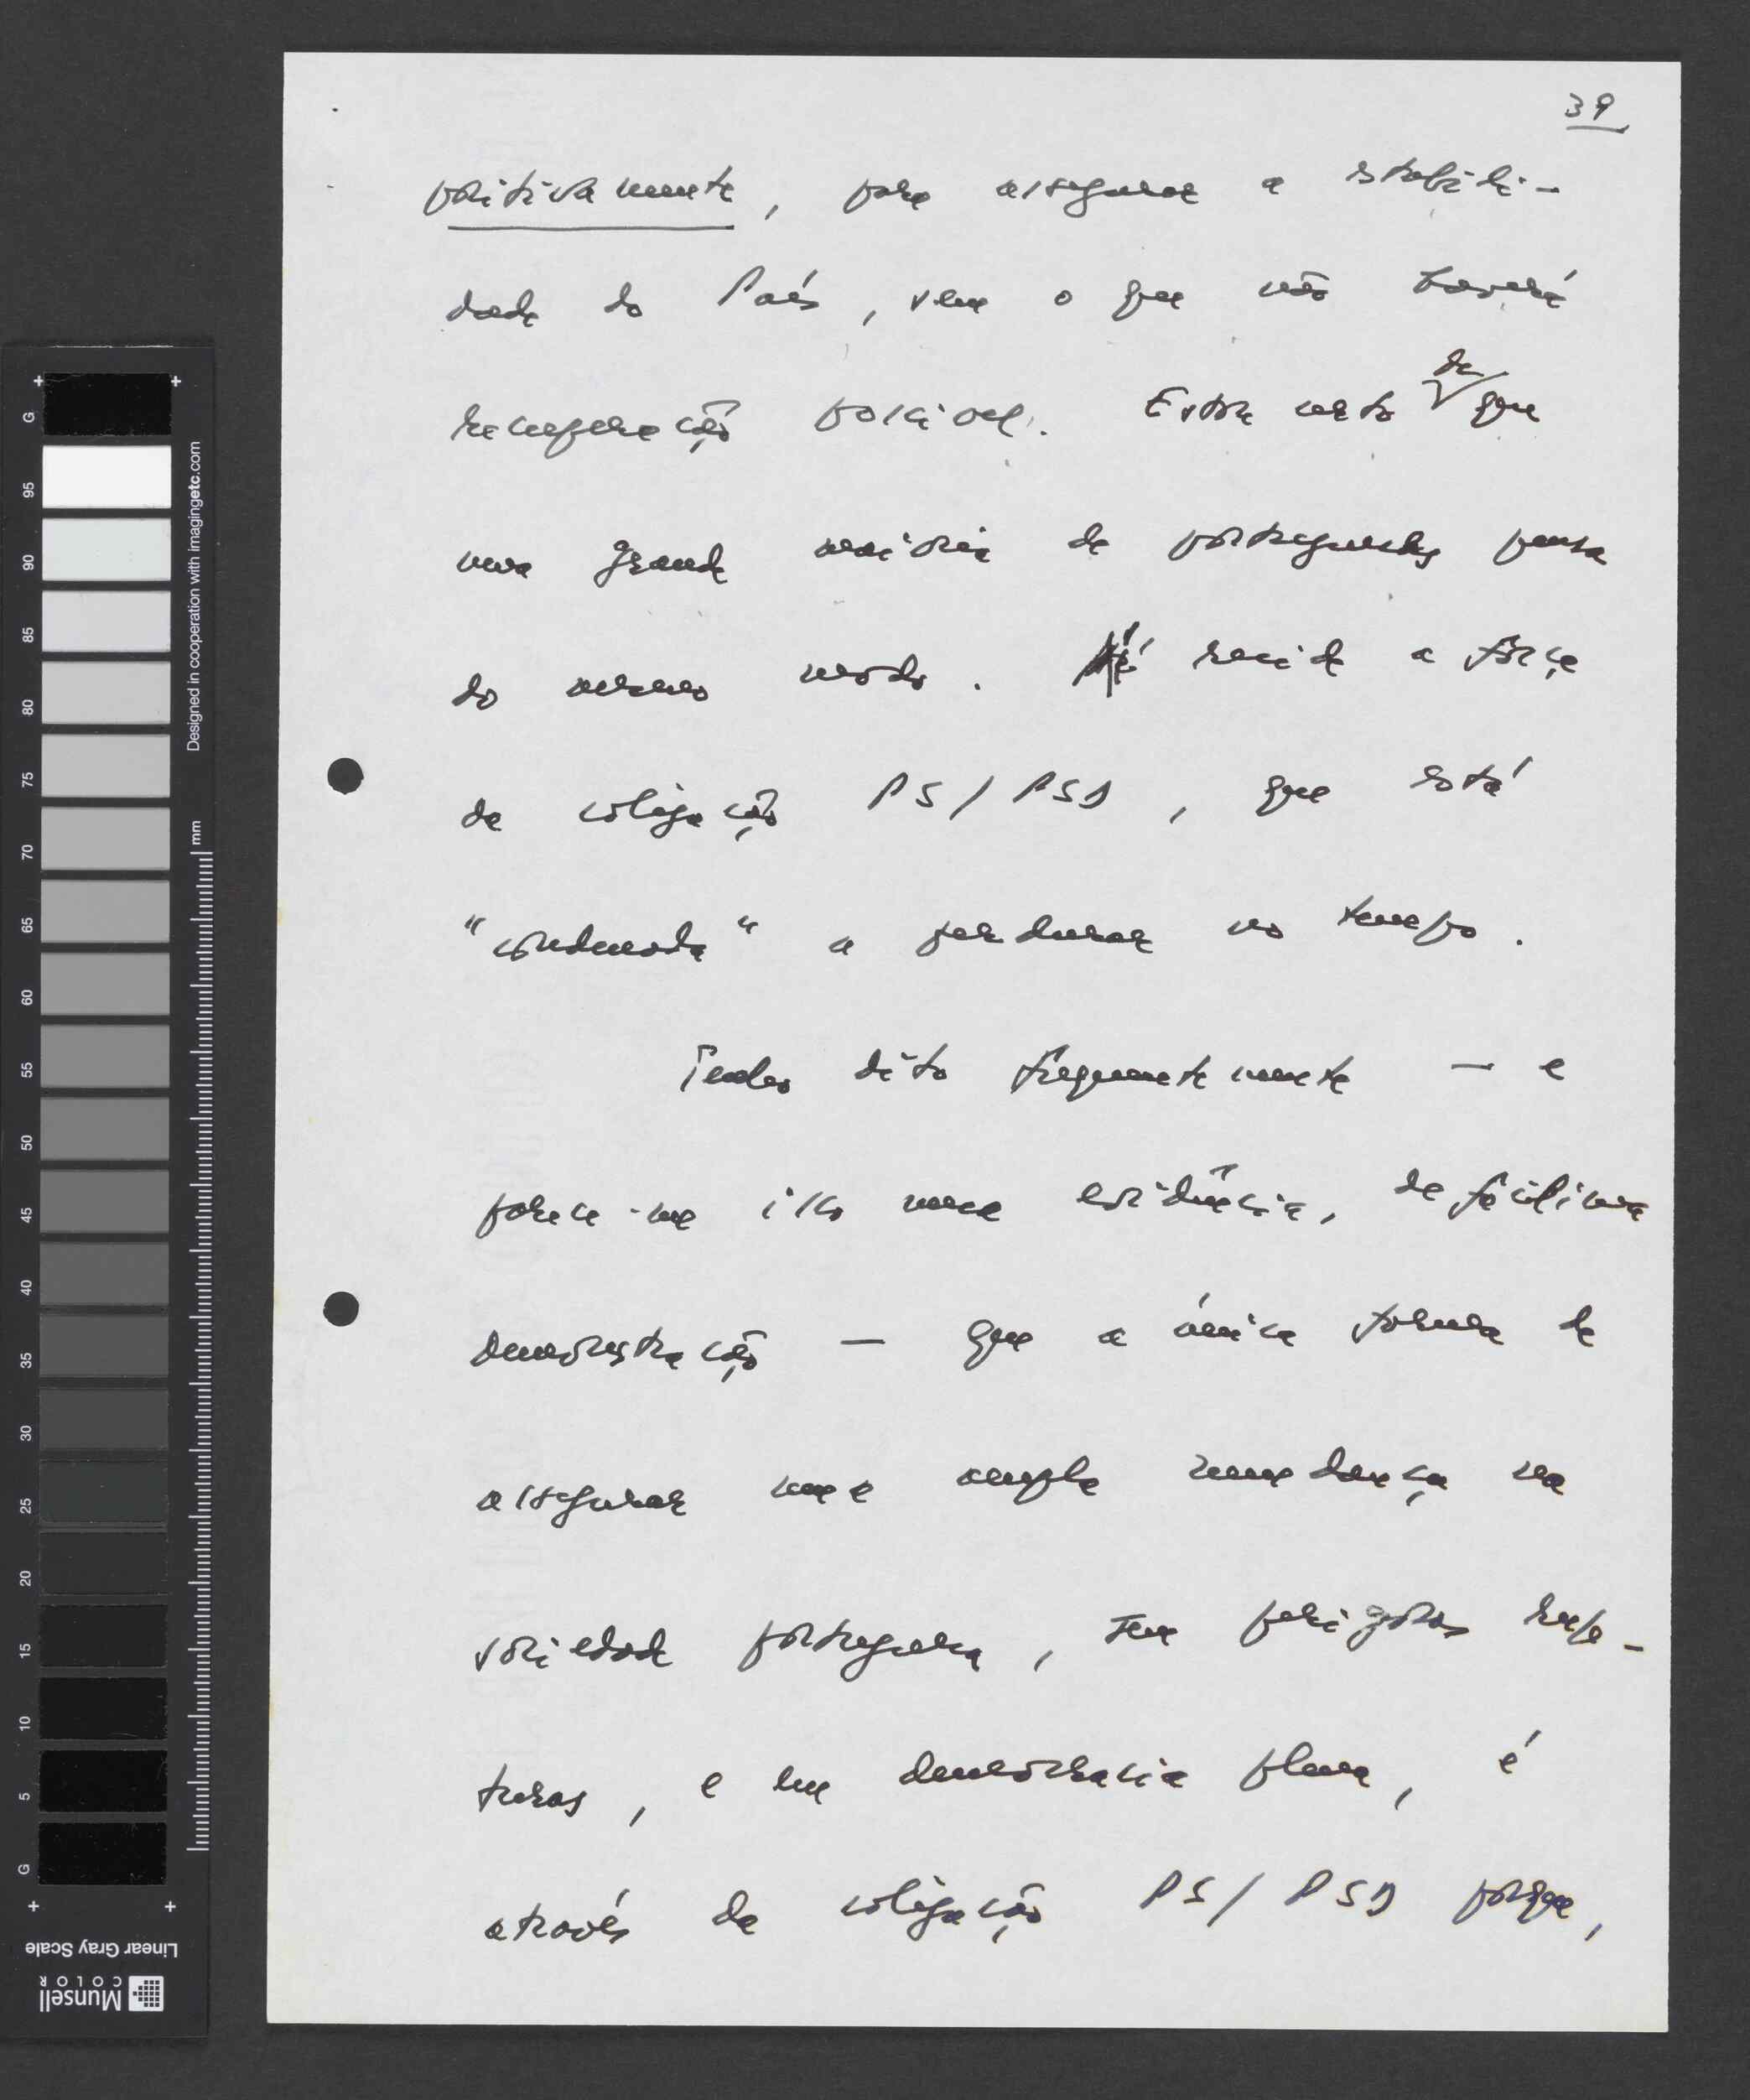 39
positivamente, para assegurar a estabili-
dade do País, sem o que não haverá
recuperação possível. Estou certo de que
uma grande maioria de portugueses pensa
do mesmo modo. Aí reside a força
da coligação PS/PSD, que está
"condenada" a perdurar no tempo.
Tenho dito frequentemente — e
parece-me isso uma evidência, de facílima
demonstração — que a única forma de
assegurar uma ampla mudança na
sociedade portuguesa, sem perigosas rup-
turas, e em democracia plena, é
através da coligação PS/PSD porque,
G
95
90
85
80
75
70
65
60
55
50
45
40
35
30
25
20
15
10
5
G
Designed in cooperation with imagingetc.com
mm
Linear Gray Scale
Munsell
COLOR